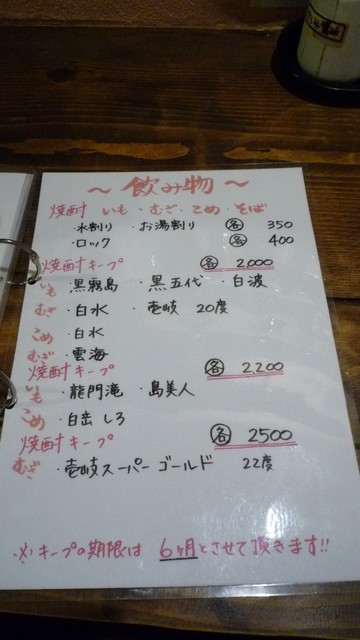 ～ 飲み物 ～
焼酎 いも・むぎ・こめ・そば
・水割り ・お湯割り 各 350
・ロック 各 400
焼酎キープ 各 2,000
いも ・黒霧島 ・黒五代 ・白波
むぎ ・白水 ・壱岐 20度
こめ ・白水
むぎ ・雲海
焼酎キープ 各 2200
いも ・龍門滝 ・島美人
こめ ・白岳 しろ
焼酎キープ 各 2500
むぎ ・壱岐スーパーゴールド 22度
※キープの期限は 6ヶ月とさせて頂きます!!